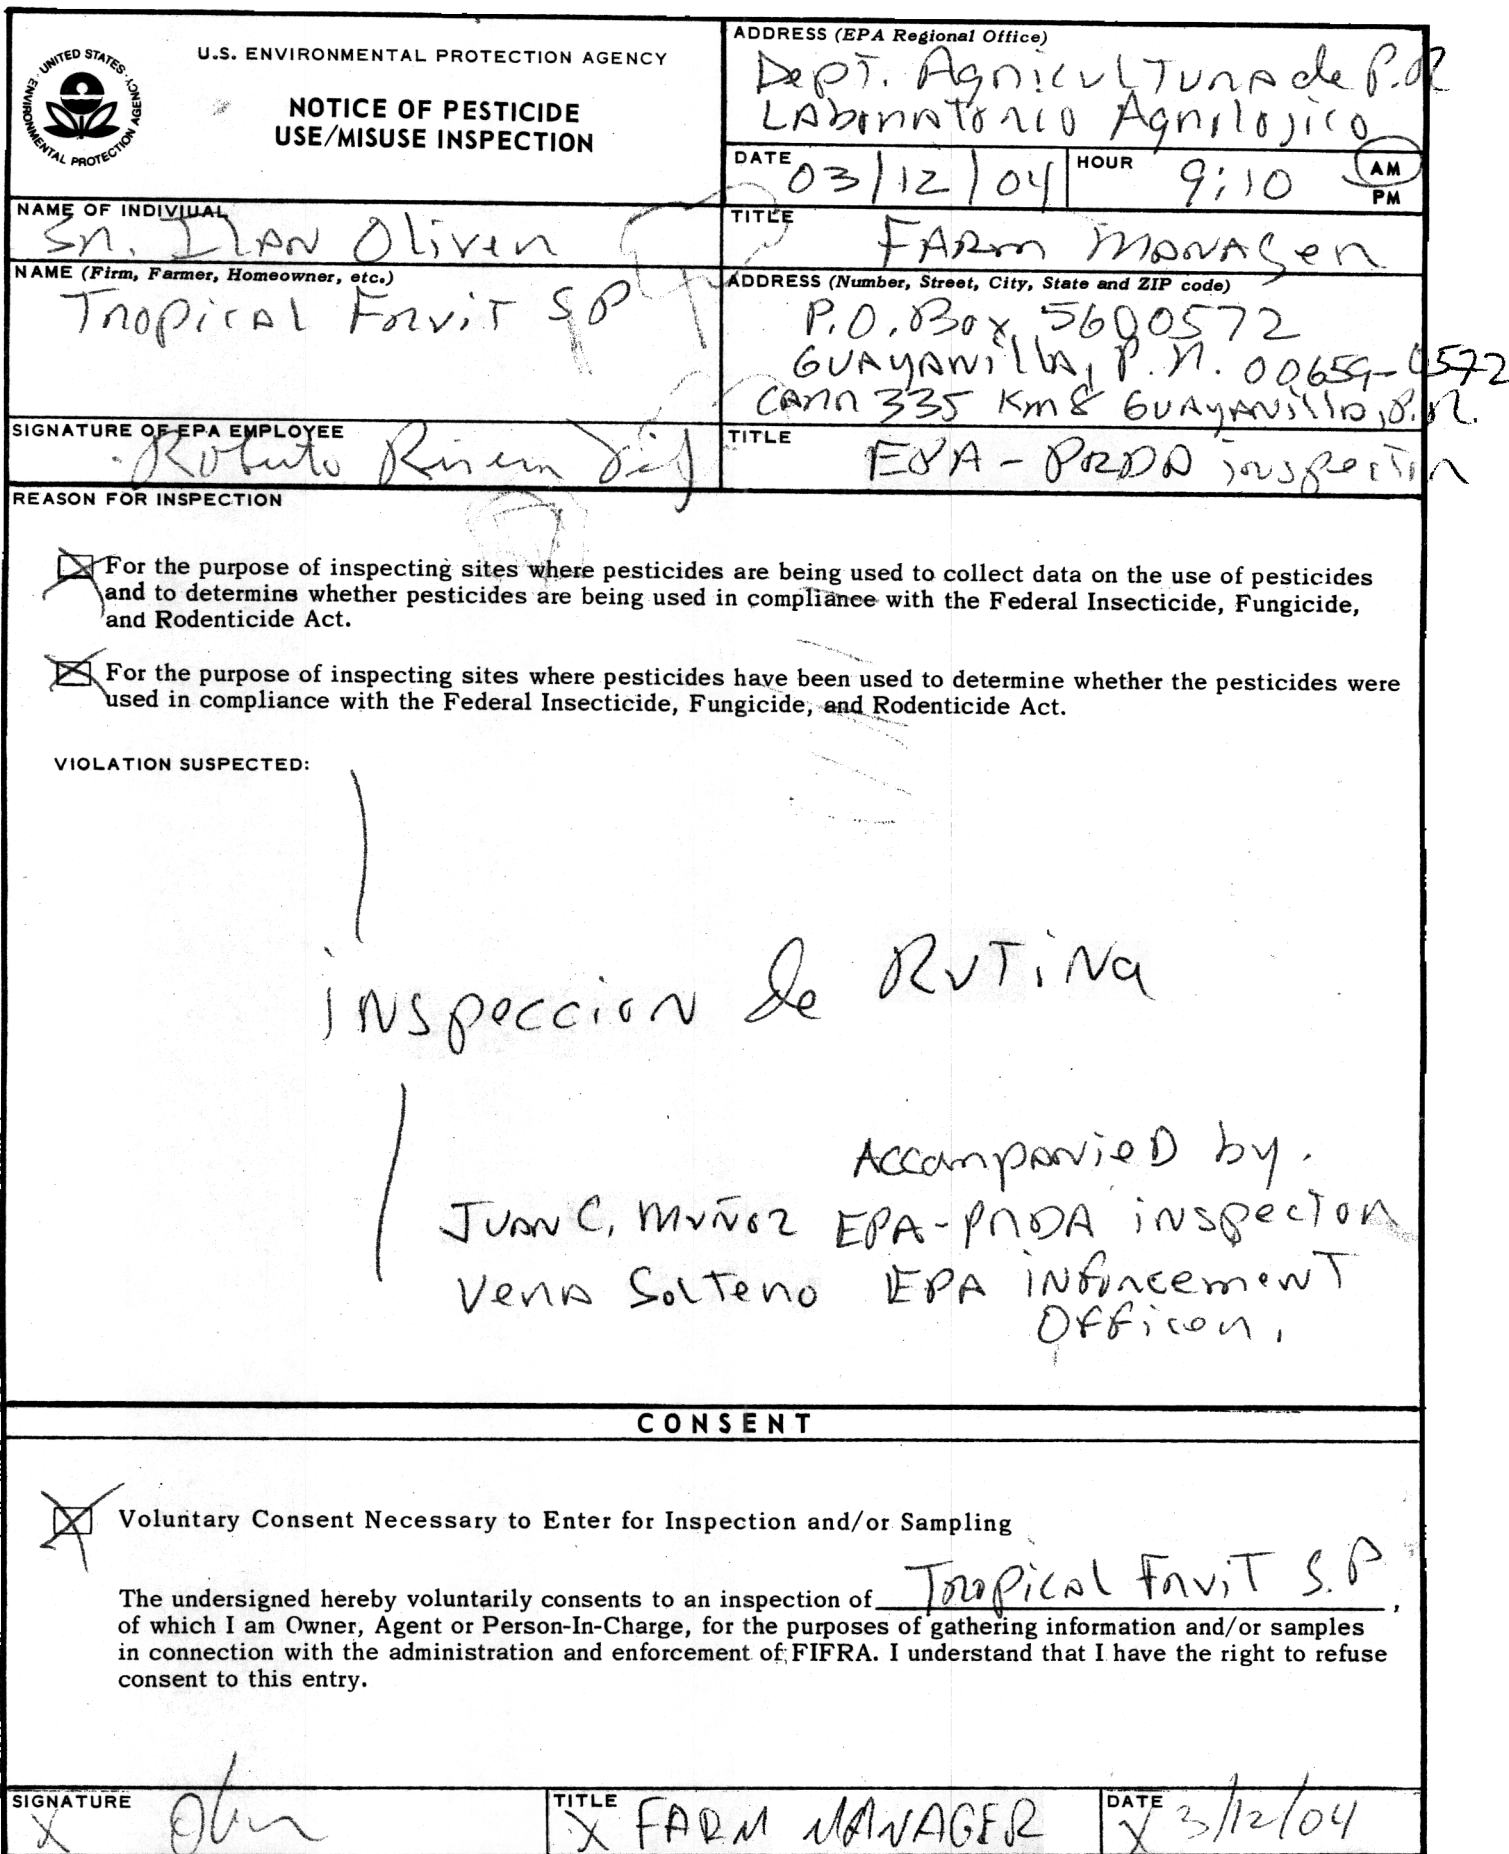 UNITED STATES
ENVIRONMENTAL PROTECTION AGENCY
U.S. ENVIRONMENTAL PROTECTION AGENCY
NOTICE OF PESTICIDE
USE/MISUSE INSPECTION
ADDRESS (EPA Regional Office)
Dept. Agricultura de P.R
Laboratorio Agrilojico
DATE 03/12/04 HOUR 9:10 AM
PM
NAME OF INDIVIUAL
Sr. Ilan Oliver
TITLE
Farm Manager
NAME (Firm, Farmer, Homeowner, etc.)
Tropical Fruit S P
ADDRESS (Number, Street, City, State and ZIP code)
P.O. Box 5600572
Guayanilla, P.R. 00659-0572
Carr 335 Km 8 Guayanilla, P.R.
SIGNATURE OF EPA EMPLOYEE
Roberto Rivera
TITLE
EPA - PRDA inspector
REASON FOR INSPECTION
For the purpose of inspecting sites where pesticides are being used to collect data on the use of pesticides
and to determine whether pesticides are being used in compliance with the Federal Insecticide, Fungicide,
and Rodenticide Act.
For the purpose of inspecting sites where pesticides have been used to determine whether the pesticides were
used in compliance with the Federal Insecticide, Fungicide, and Rodenticide Act.
VIOLATION SUSPECTED:
inspeccion de RuTiNa
Accompanied by.
Juan C. Muñoz EPA-PRDA inspector
Vera Soltero EPA inforcement
Officer.
CONSENT
Voluntary Consent Necessary to Enter for Inspection and/or Sampling
The undersigned hereby voluntarily consents to an inspection of Tropical Fruit S.P,
of which I am Owner, Agent or Person-In-Charge, for the purposes of gathering information and/or samples
in connection with the administration and enforcement of FIFRA. I understand that I have the right to refuse
consent to this entry.
SIGNATURE
X
TITLE
X FARM MANAGER
DATE
X 3/12/04